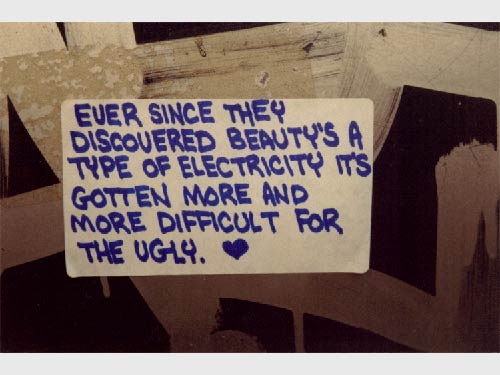 EVER SINCE THEY
DISCOVERED BEAUTY'S A
TYPE OF ELECTRICITY IT'S
GOTTEN MORE AND
MORE DIFFICULT FOR
THE UGLY. ♥